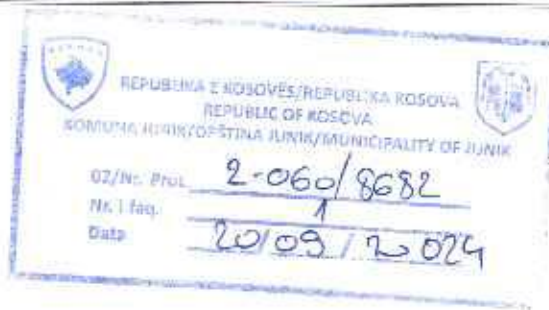 REPUBLIKA E KOSOVËS/REPUBLIKA KOSOVA
REPUBLIC OF KOSOVA
KOMUNA JUNIK/OPŠTINA JUNIK/MUNICIPALITY OF JUNIK
02/Nr. Prot. 2-060/8682
Nr. i faq. 1
Data 20/09/2024